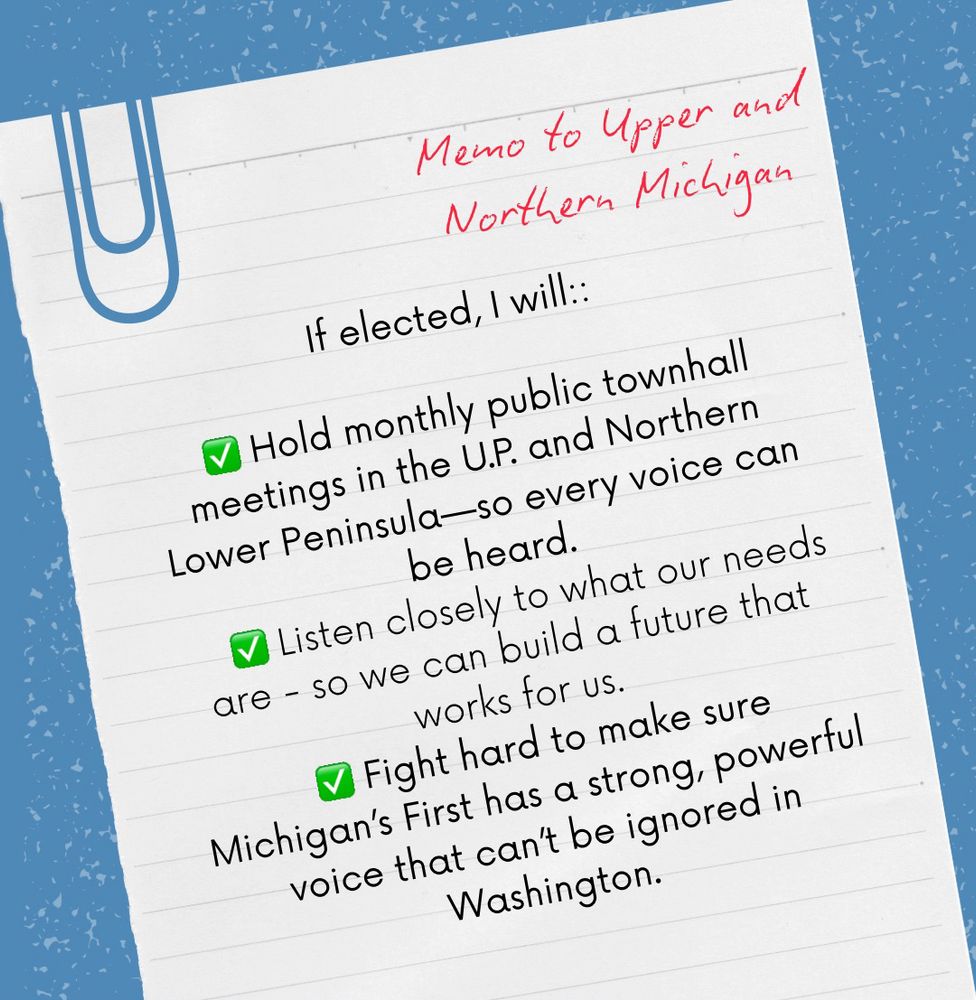 Memo to Upper and
Northern Michigan
If elected, I will::
✅ Hold monthly public townhall
meetings in the U.P. and Northern
Lower Peninsula—so every voice can
be heard.
✅ Listen closely to what our needs
are - so we can build a future that
works for us.
✅ Fight hard to make sure
Michigan's First has a strong, powerful
voice that can't be ignored in
Washington.